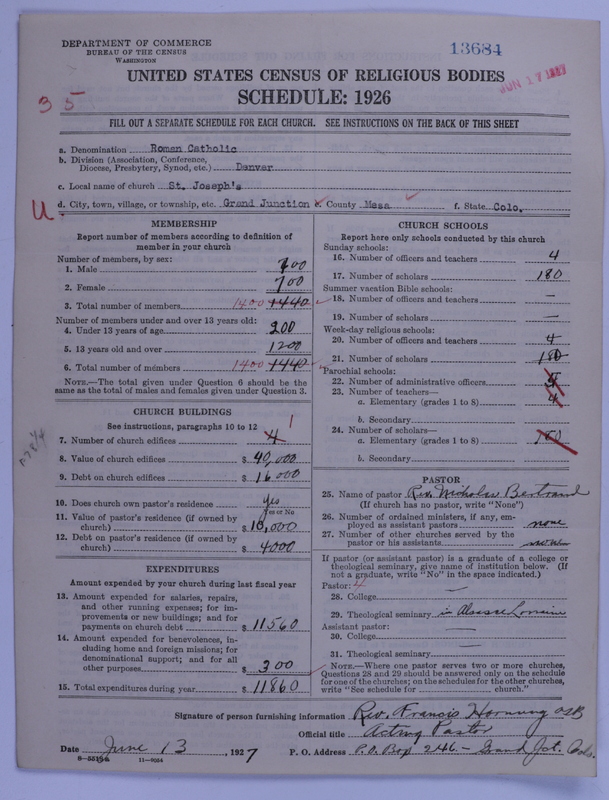 DEPARTMENT OF COMMERCE
BUREAU OF THE CENSUS
WASHINGTON
13684
JUN 17 1927
UNITED STATES CENSUS OF RELIGIOUS BODIES
35
SCHEDULE: 1926
FILL OUT A SEPARATE SCHEDULE FOR EACH CHURCH. SEE INSTRUCTIONS ON THE BACK OF THIS SHEET
a. Denomination Roman Catholic
b. Division (Association, Conference,
Diocese, Presbytery, Synod, etc.) Denver
c. Local name of church St. Joseph's
U
d. City, town, village, or township, etc. Grand Junction e. County Mesa f. State Colo.
MEMBERSHIP
Report number of members according to definition of
member in your church
Number of members, by sex:
1. Male 700
2. Female 700
3. Total number of members 1400 1440
Number of members under and over 13 years old:
4. Under 13 years of age 200
5. 13 years old and over 1200
6. Total number of members 1400 1440
NOTE.—The total given under Question 6 should be the
same as the total of males and females given under Question 3.
CHURCH BUILDINGS
See instructions, paragraphs 10 to 12
7. Number of church edifices 4 1
8. Value of church edifices $ 40,000
9. Debt on church edifices $ 16000
10. Does church own pastor's residence yes
Yes or No
11. Value of pastor's residence (if owned by
church) $ 10,000
12. Debt on pastor's residence (if owned by
church) $ 4000
EXPENDITURES
Amount expended by your church during last fiscal year
13. Amount expended for salaries, repairs,
and other running expenses; for im-
provements or new buildings; and for
payments on church debt $ 11560
14. Amount expended for benevolences, in-
cluding home and foreign missions; for
denominational support; and for all
other purposes $ 300
15. Total expenditures during year $ 11860
CHURCH SCHOOLS
Report here only schools conducted by this church
Sunday schools:
16. Number of officers and teachers 4
17. Number of scholars 180
Summer vacation Bible schools:
18. Number of officers and teachers —
19. Number of scholars —
Week-day religious schools:
20. Number of officers and teachers 4
21. Number of scholars 180
Parochial schools:
22. Number of administrative officers
23. Number of teachers—
a. Elementary (grades 1 to 8) 4
b. Secondary
24. Number of scholars—
a. Elementary (grades 1 to 8) 180
b. Secondary
PASTOR
25. Name of pastor Rev. Nicholas Bertrand
(If church has no pastor, write "None")
26. Number of ordained ministers, if any, em-
ployed as assistant pastors none
27. Number of other churches served by the
pastor or his assistants
If pastor (or assistant pastor) is a graduate of a college or
theological seminary, give name of institution below. (If
not a graduate, write "No" in the space indicated.)
Pastor: 4
28. College —
29. Theological seminary in Alsasse Lorraine
Assistant pastor:
30. College —
31. Theological seminary —
NOTE.—Where one pastor serves two or more churches,
Questions 28 and 29 should be answered only on the schedule
for one of the churches; on the schedules for the other churches,
write "See schedule for church."
Signature of person furnishing information Rev. Francis Hornung OSB
Official title Acting Pastor
Date June 13, 1927 P. O. Address P.O. Box 246 - Grand Jct. Colo.
11—9554